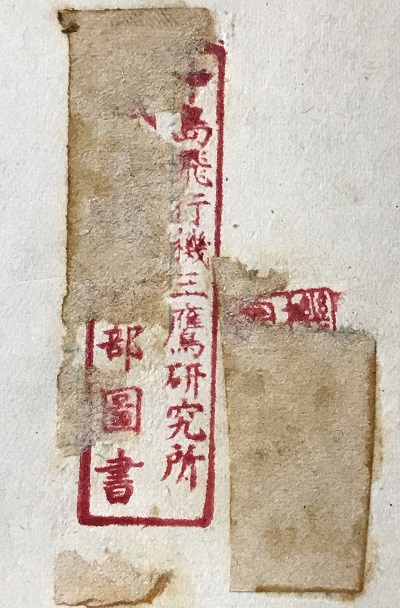 中島飛行機三鷹研究所
部圖書